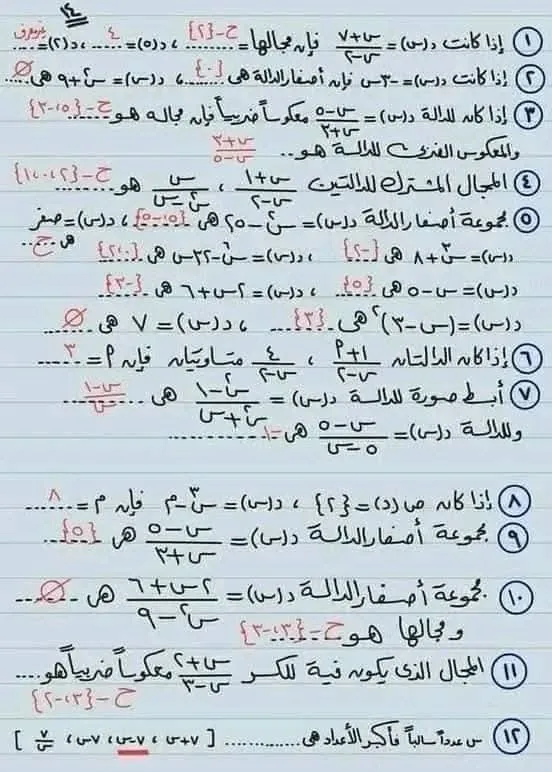 ١٤
① إذا كانت د(س) = (س+٧)/(س-٢) فإن مجالها = ح-{٢} ، د(٥) = ٤ ، د(٢) = غير معرف
② إذا كانت د(س) = -٣س فإن أصفار الدالة هى {٠} ، د(س) = س²+٩ هى ∅
③ إذا كان للدالة د(س) = (س-٥)/(س+٣) معكوساً ضربياً فإن مجاله هو ح-{٥،-٣}
والمعكوس الضربى للدالة هو (س+٣)/(س-٥)
④ المجال المشترك للدالتين (س+١)/(س-٢) ، س/(س²-س) هو ح-{٢،٠،١}
⑤ مجموعة أصفار الدالة د(س) = س²-٢٥ هى {٥،-٥} ، د(س) = صفر هى ح
د(س) = س³+٨ هى {-٢} ، د(س) = س⁶-٣٢س هى {٠،٢}
د(س) = س-٥ هى {٥} ، د(س) = ٢س+٦ هى {-٣}
د(س) = (س-٣)² هى {٣} ، د(س) = ٧ هى ∅
⑥ إذا كان الدالتان (١+٩)/(س-٢) ، ٤/(س-٢) متساويتان فإن ٩ = ٣
⑦ أبسط صورة للدالة د(س) = (س²-١)/(س²+س) هى (س-١)/س
وللدالة د(س) = (س-٥)/(٥-س) هى -١
⑧ إذا كان ص(د) = {٢} ، د(س) = س³-م فإن م = ٨
⑨ مجموعة أصفار الدالة د(س) = (س-٥)/(س+٣) هى {٥}
⑩ مجموعة أصفار الدالة د(س) = (٢س+٦)/(س²-٩) هى ∅
ومجالها هو ح-{٣،-٣}
⑪ المجال الذى يكون فية للكسر (س+٢)/(س-٣) معكوساً ضربياً هو
ح-{٣،-٢}
⑫ س عدداً سالباً فأكبر الأعداد هى [ ٧+س ، ٧-س ، ٧س ، ٧/س ]